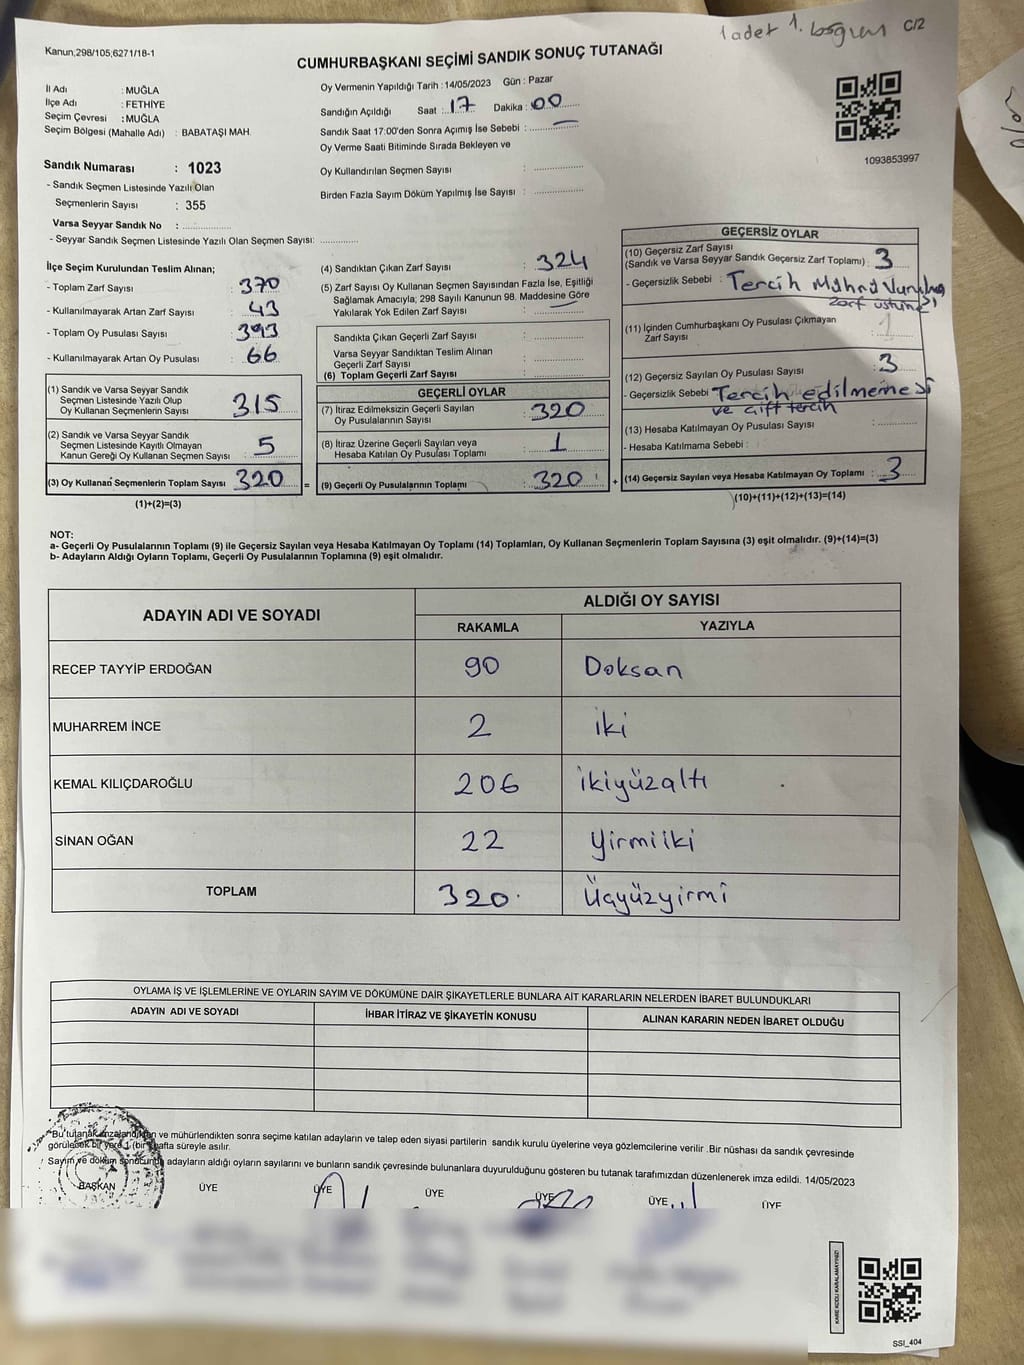 1 adet 1. C/2
Kanun,298/105,6271/18-1
CUMHURBAŞKANI SEÇİMİ SANDIK SONUÇ TUTANAĞI
İl Adı : MUĞLA
İlçe Adı : FETHİYE
Seçim Çevresi : MUĞLA
Seçim Bölgesi (Mahalle Adı) : BABATAŞI MAH.
Sandık Numarası : 1023
- Sandık Seçmen Listesinde Yazılı Olan
Seçmenlerin Sayısı : 355
Varsa Seyyar Sandık No : ....................
- Seyyar Sandık Seçmen Listesinde Yazılı Olan Seçmen Sayısı: ...............
Oy Vermenin Yapıldığı Tarih : 14/05/2023 Gün : Pazar
Sandığın Açıldığı Saat : 17 Dakika : 00
Sandık Saat 17:00'den Sonra Açımış İse Sebebi : ....................
Oy Verme Saati Bitiminde Sırada Bekleyen ve
Oy Kullandırılan Seçmen Sayısı : ....................
Birden Fazla Sayım Döküm Yapılmış İse Sayısı : ....................
1093853997
İlçe Seçim Kurulundan Teslim Alınan;
- Toplam Zarf Sayısı : 370
- Kullanılmayarak Artan Zarf Sayısı : 43
- Toplam Oy Pusulası Sayısı : 393
- Kullanılmayarak Artan Oy Pusulası : 66
(1) Sandık ve Varsa Seyyar Sandık
Seçmen Listesinde Yazılı Olup
Oy Kullanan Seçmenlerin Sayısı : 315
(2) Sandık ve Varsa Seyyar Sandık
Seçmen Listesinde Kayıtlı Olmayan
Kanun Gereği Oy Kullanan Seçmen Sayısı : 5
(3) Oy Kullanan Seçmenlerin Toplam Sayısı : 320 =
(1)+(2)=(3)
(4) Sandıktan Çıkan Zarf Sayısı : 324
(5) Zarf Sayısı Oy Kullanan Seçmen Sayısından Fazla İse, Eşitliği
Sağlamak Amacıyla; 298 Sayılı Kanunun 98. Maddesine Göre
Yakılarak Yok Edilen Zarf Sayısı : ....................
Sandıkta Çıkan Geçerli Zarf Sayısı : ....................
Varsa Seyyar Sandıktan Teslim Alınan
Geçerli Zarf Sayısı : ....................
(6) Toplam Geçerli Zarf Sayısı : ....................
GEÇERLİ OYLAR
(7) İtiraz Edilmeksizin Geçerli Sayılan
Oy Pusulalarının Sayısı : 320
(8) İtiraz Üzerine Geçerli Sayılan veya
Hesaba Katılan Oy Pusulası Toplamı : 1
(9) Geçerli Oy Pusulalarının Toplamı : 320 +
GEÇERSİZ OYLAR
(10) Geçersiz Zarf Sayısı
(Sandık ve Varsa Seyyar Sandık Geçersiz Zarf Toplamı) : 3
- Geçersizlik Sebebi : Tercih
zarf üstünde
(11) İçinden Cumhurbaşkanı Oy Pusulası Çıkmayan
Zarf Sayısı : 1
(12) Geçersiz Sayılan Oy Pusulası Sayısı : 3
- Geçersizlik Sebebi : Tercih edilmemesi
ve çift tercih
(13) Hesaba Katılmayan Oy Pusulası Sayısı : ....................
- Hesaba Katılmama Sebebi :
(14) Geçersiz Sayılan veya Hesaba Katılmayan Oy Toplamı : 3
(10)+(11)+(12)+(13)=(14)
NOT:
a- Geçerli Oy Pusulalarının Toplamı (9) ile Geçersiz Sayılan veya Hesaba Katılmayan Oy Toplamı (14) Toplamları, Oy Kullanan Seçmenlerin Toplam Sayısına (3) eşit olmalıdır. (9)+(14)=(3)
b- Adayların Aldığı Oyların Toplamı, Geçerli Oy Pusulalarının Toplamına (9) eşit olmalıdır.
ADAYIN ADI VE SOYADI ALDIĞI OY SAYISI
RAKAMLA YAZIYLA
RECEP TAYYİP ERDOĞAN 90 Doksan
MUHARREM İNCE 2 iki
KEMAL KILIÇDAROĞLU 206 ikiyüzaltı
SİNAN OĞAN 22 Yirmiiki
TOPLAM 320 Üçyüzyirmi
OYLAMA İŞ VE İŞLEMLERİNE VE OYLARIN SAYIM VE DÖKÜMÜNE DAİR ŞİKAYETLERLE BUNLARA AİT KARARLARIN NELERDEN İBARET BULUNDUKLARI
ADAYIN ADI VE SOYADI İHBAR İTİRAZ VE ŞİKAYETİN KONUSU ALINAN KARARIN NEDEN İBARET OLDUĞU
"Bu tutanak imzalandıktan ve mühürlendikten sonra seçime katılan adayların ve talep eden siyasi partilerin sandık kurulu üyelerine veya gözlemcilerine verilir .Bir nüshası da sandık çevresinde
görülecek bir yere 1 (bir) hafta süreyle asılır.
Sayım ve döküm sonucunda adayların aldığı oyların sayılarını ve bunların sandık çevresinde bulunanlara duyurulduğunu gösteren bu tutanak tarafımızdan düzenlenerek imza edildi. 14/05/2023
BAŞKAN ÜYE ÜYE ÜYE ÜYE ÜYE ÜYE
KARE KODU KARALAMAYINIZ!
SSI_404